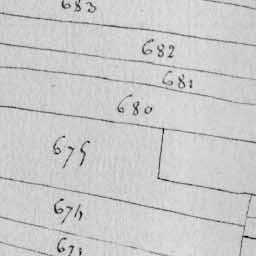 683
682
681
680
675
674
671